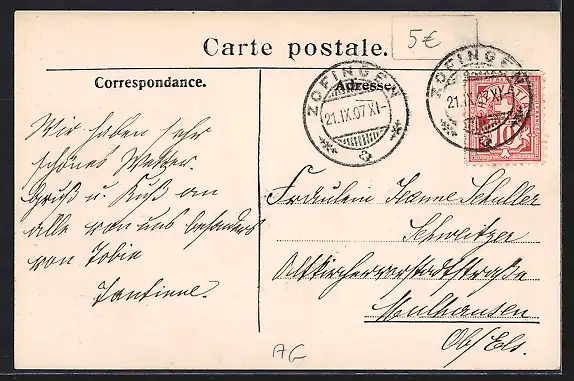 5€
Carte postale.
Correspondance.
Adresse
ZOFINGEN
21.IX.07 XI-
ZOFINGEN
21.IX.07 XI-
10
Wir haben sehr
schönes Wetter.
Gruß u. Kuß an
alle von uns besonders
von Tobie
Fräulein Jeanne Schuller
Schweitzer
Altkircher vorstadtstraße
Mülhausen
Ob/Els.
AG